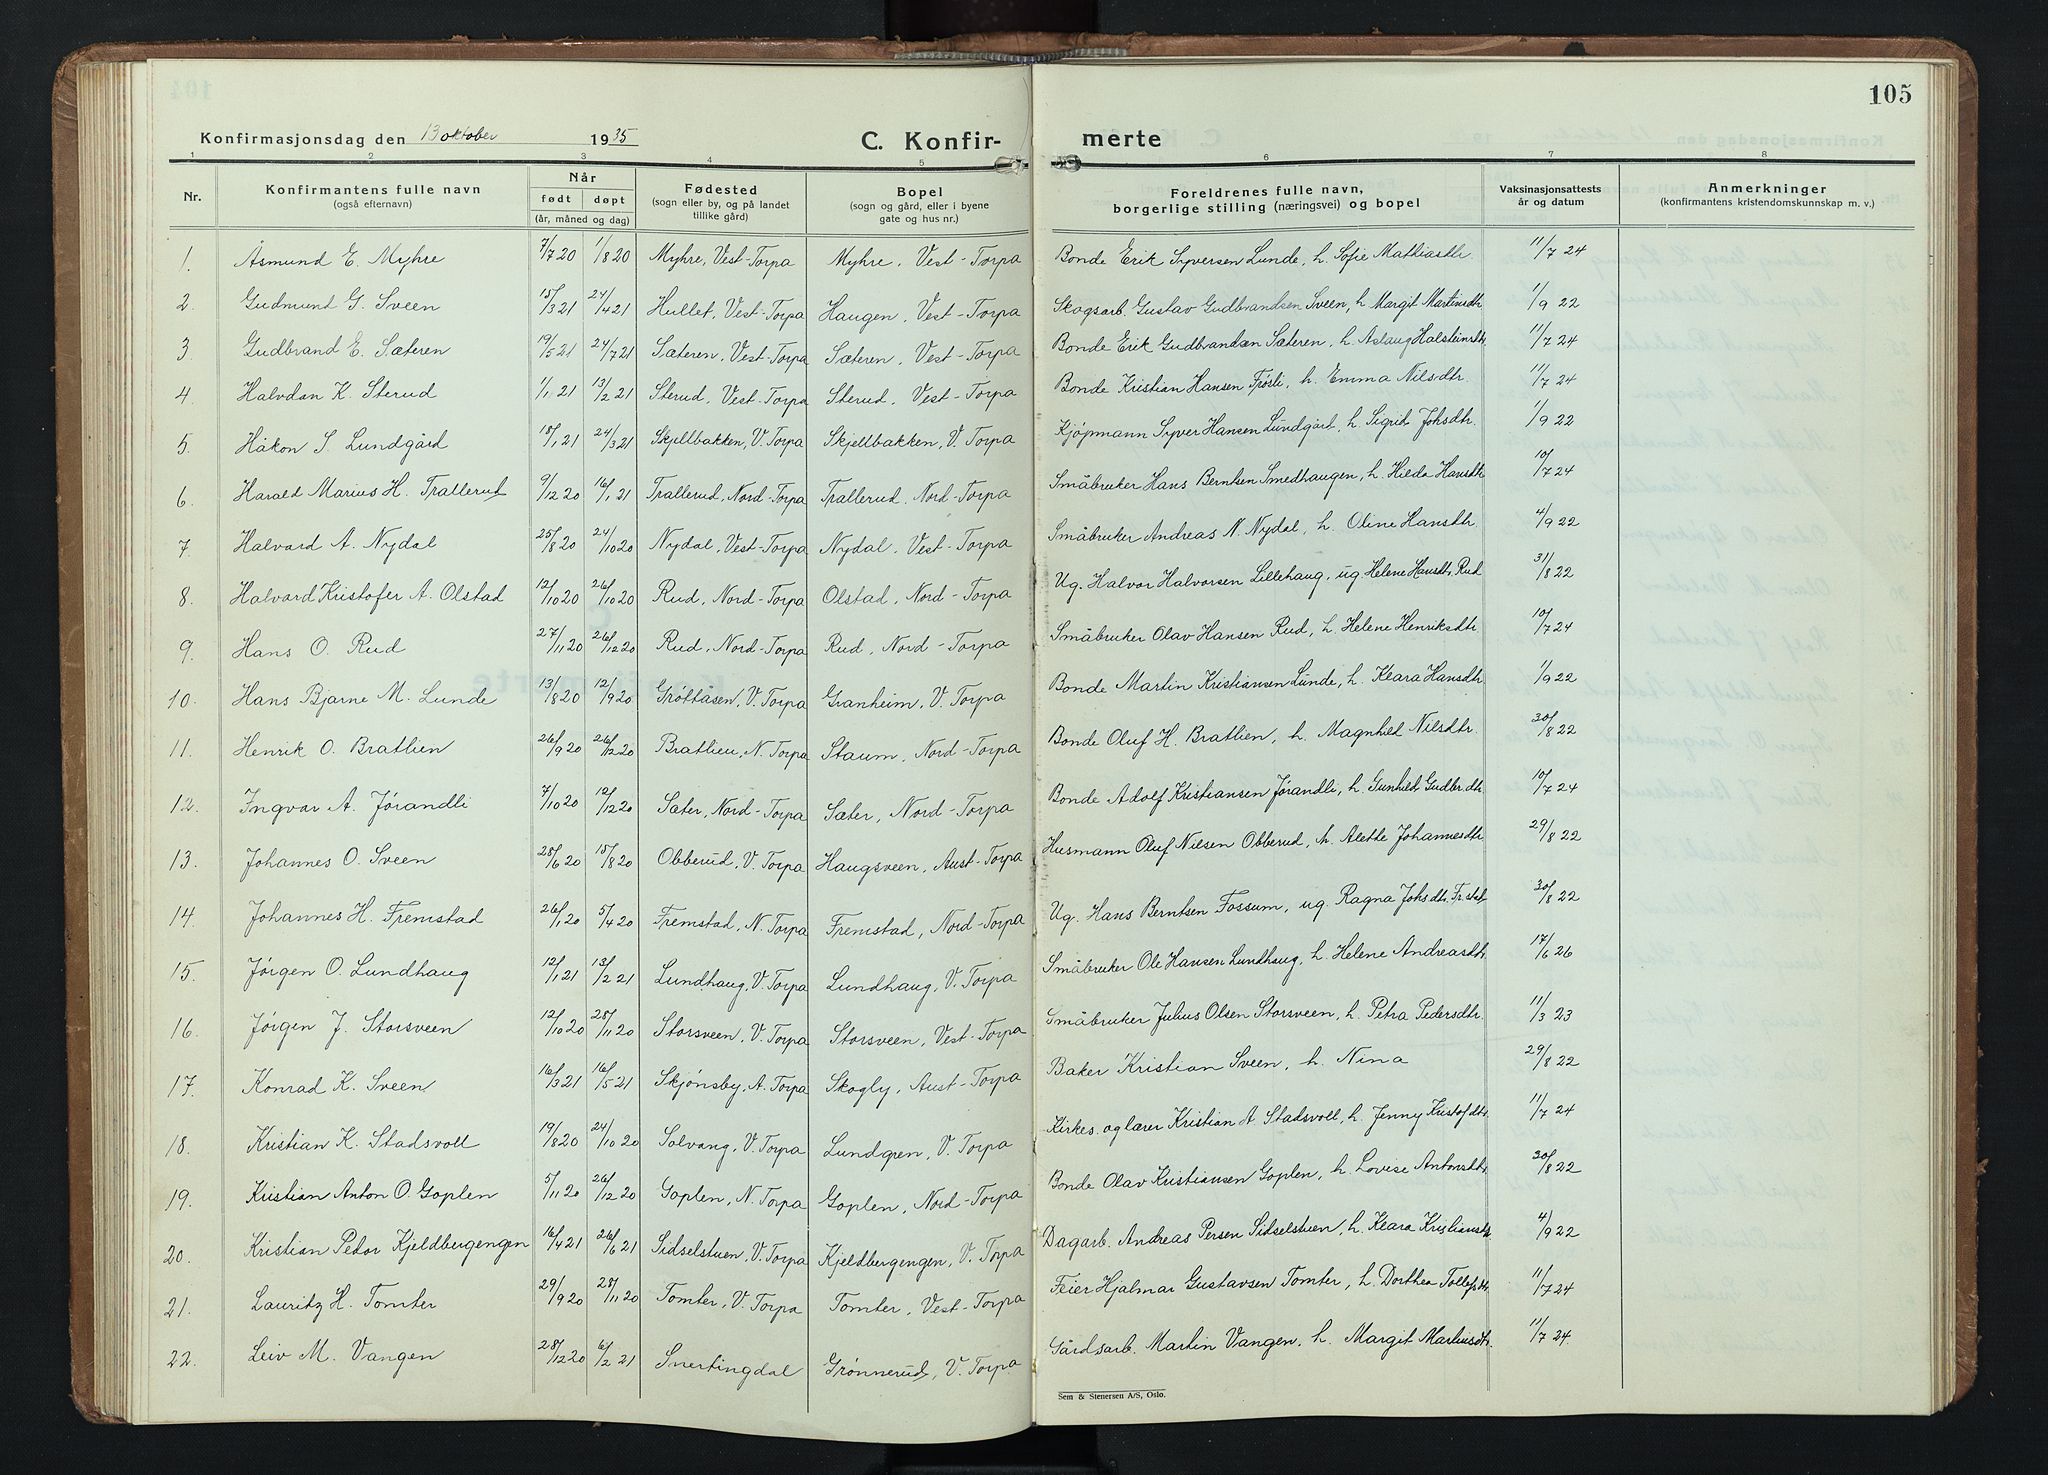 105
Konfirmasjonsdag den 13 oktober 1935 C. Konfir- merte
1 2 3 4 5 6 7 8
Nr. Konfirmantens fulle navn (også efternavn) Når født døpt (år, måned og dag) Fødested (sogn eller by, og på landet tillike gård) Bopel (sogn og gård, eller i byene gate og hus nr.) Foreldrenes fulle navn, borgerlige stilling (næringsvei) og bopel Vaksinasjonsattests år og datum Anmerkninger (konfirmantens kristendomskunnskap m. v.)
1. Åsmund E. Myhre 7/7 20 1/8 20 Myhre, Vest-Torpa Myhre, Vest-Torpa Bonde Erik Syversen Lunde, h. Sofie Mathiasdtr. 11/7 24
2. Gudmund G. Sveen 15/3 21 24/4 21 Hullet, Vest-Torpa Haugen, Vest-Torpa Skogsarb. Gustav Gudbrandsen Sveen, h. Margit Martinsdtr 1/9 22
3. Gudbrand E. Sæteren 19/5 21 24/7 21 Sæteren, Vest-Torpa Sæteren, Vest-Torpa Bonde Erik Gudbrandsen Sæteren, h. Aslaug Halsteinsdtr. 11/7 24
4. Halvdan K. Sterud 1/1 21 13/2 21 Sterud, Vest-Torpa Sterud, Vest-Torpa Bonde Kristian Hansen Frøsli, h. Emma Nilsdtr. 11/7 24
5. Håkon S. Lundgård 18/1 21 24/3 21 Skjellbakken, V. Torpa Skjellbakken, V. Torpa Kjøpmann Syver Hansen Lundgårt, h. Sigrid Johsdtr. 1/9 22
6. Harald Marius H. Trallerud 9/12 20 16/1 21 Trallerud, Nord-Torpa Trallerud, Nord-Torpa Småbruker Hans Berntsen Smedhaugen, h. Hilda Hansdtr 10/7 24
7. Halvard A. Nydal 25/8 20 24/10 20 Nydal, Vest-Torpa Nydal, Vest-Torpa Småbruker Andreas N. Nydal, h. Oline Hansdtr. 4/9 22
8. Halvard Kristofer A. Olstad 12/10 20 26/10 20 Rud, Nord-Torpa Olstad, Nord-Torpa Ug. Halvor Halvorsen Lillehaug, ug. Helene Hansdtr. Rud 31/8 22
9. Hans O. Rud 27/11 20 26/12 20 Rud, Nord-Torpa Rud, Nord-Torpa Småbruker Olav Hansen Rud, h. Helene Henriksdtr 10/7 24
10. Hans Bjarne M. Lunde 13/8 20 12/9 20 Grøttåsen, V. Torpa Granheim, V. Torpa Bonde Martin Kristiansen Lunde, h. Klara Hansdtr 1/9 22
11. Henrik O. Bratlien 26/9 20 26/12 20 Bratlien, N. Torpa Staum, Nord-Torpa Bonde Oluf H. Bratlien, h. Magnhild Nilsdtr. 30/8 22
12. Ingvar A. Jørandli 7/10 20 12/12 20 Sæter, Nord-Torpa Sæter, Nord-Torpa Bonde Adolf Kristiansen Jørandli, h. Gunhild Gudbr.dtr 10/7 24
13. Johannes O. Sveen 28/6 20 15/8 20 Obberud, V. Torpa Haugsveen, Aust-Torpa Husmann Oluf Nilsen Obberud, h. Alette Johannesdtr 29/8 22
14. Johannes H. Fremstad 26/1 20 5/4 20 Fremstad, N. Torpa Fremstad, Nord-Torpa Ug. Hans Berntsen Fossum, ug. Ragna Johsdtr. Fr.stad 30/8 22
15. Jørgen O. Lundhaug 12/1 21 13/2 21 Lundhaug, V. Torpa Lundhaug, V. Torpa Småbruker Ole Hansen Lundhaug, h. Helene Andreasdtr. 17/6 26
16. Jørgen J. Storsveen 12/10 20 28/11 20 Storsveen, V. Torpa Storsveen, Vest-Torpa Småbruker Julius Olsen Storsveen, h. Petra Pedersdtr. 11/3 23
17. Konrad K. Sveen 16/3 21 16/5 21 Skjønsby, A. Torpa Skogly, Aust-Torpa Baker Kristian Sveen, h. Nina 29/8 22
18. Kristian K. Stadsvoll 19/8 20 24/10 20 Solvang, V. Torpa Lundgren, V. Torpa Kirkes. og lærer Kristian A. Stadsvoll, h. Jenny Kristofdtr. 11/7 24
19. Kristian Anton O. Goplen 5/11 20 26/12 20 Goplen, N. Torpa Goplen, Nord-Torpa Bonde Olav Kristiansen Goplen, h. Lovise Antonsdtr. 30/8 22
20. Kristian Peder Kjeldbergengen 16/4 21 26/6 21 Sidselstuen, V. Torpa Kjeldbergengen, V. Torpa Dagarb. Andreas Persen Sidselstuen, h. Klara Kristiansdtr 4/9 22
21. Lauritz H. Tomter 29/9 20 28/11 20 Tomter, V. Torpa Tomter, Vest-Torpa Feier Hjalmar Gustavsen Tomter, h. Dorthea Tollefsdtr 11/7 24
22. Leiv M. Vangen 28/12 20 6/2 21 Snertingdal Grønnerud, V. Torpa Gårdsarb. Martin Vangen, h. Margit Mathisdtr. 11/7 24
Sem & Stenersen A/S, Oslo.